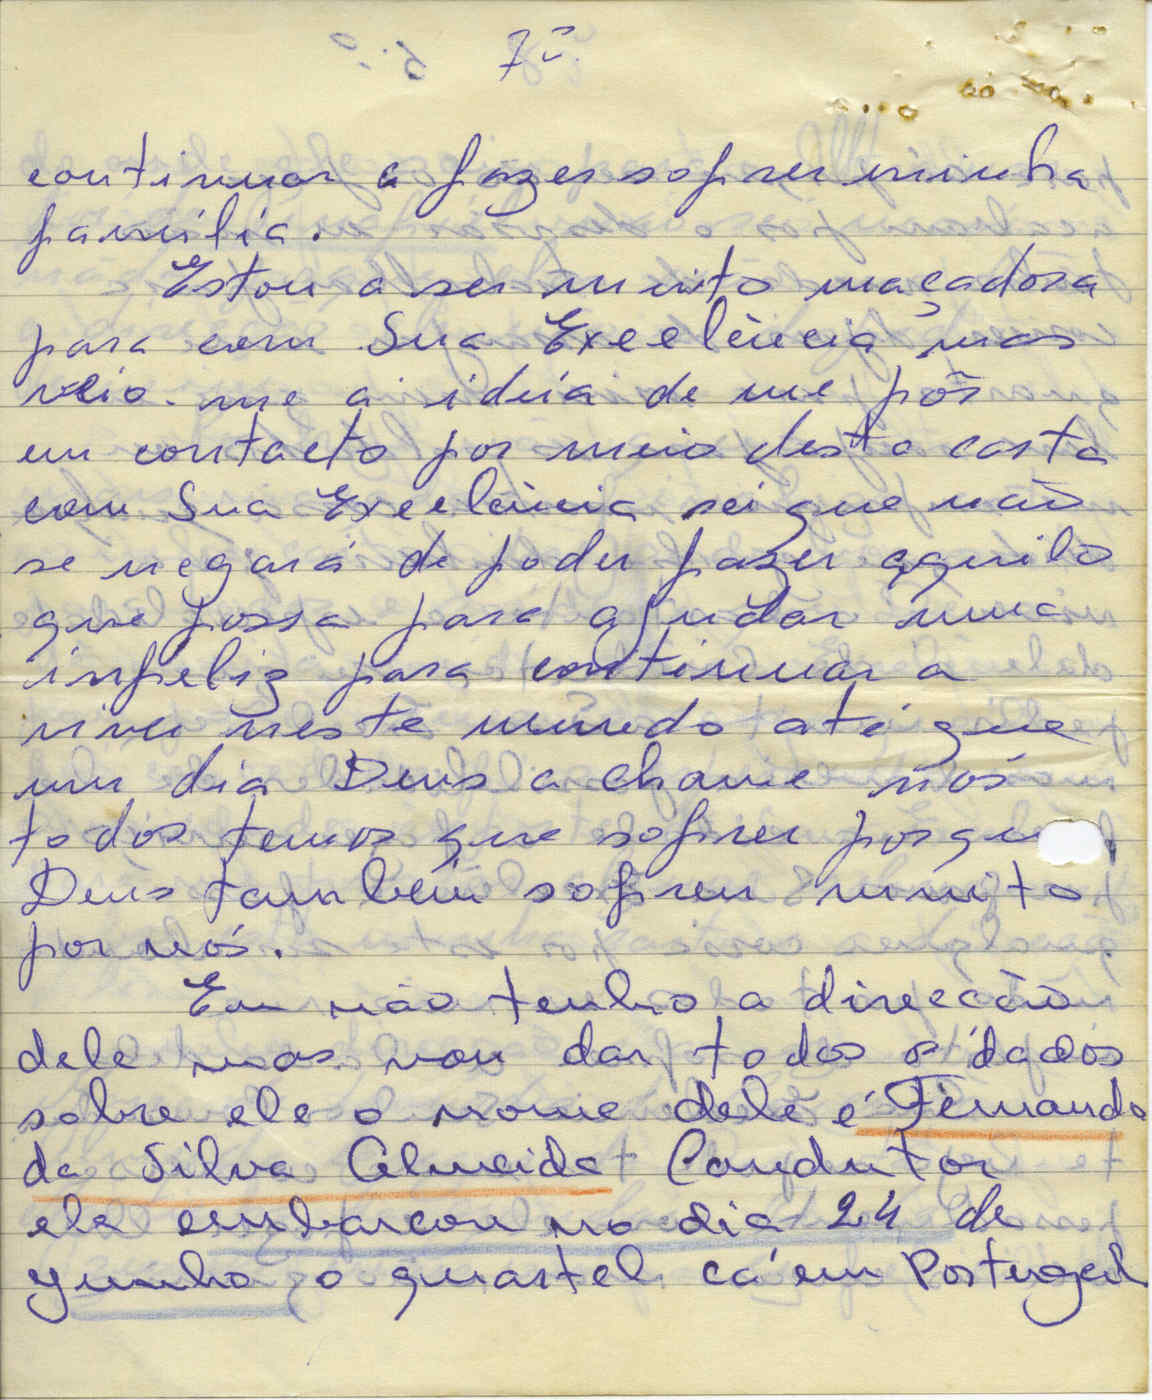 7º
continuar a fazer sofrer minha
família.
Estou a ser muito maçadora
para com Sua Exelência mas
veio-me a idéia de me pôr
em contacto por meio desta carta
com Sua Exelência sei que não
se negará de poder fazer aquilo
que possa para ajudar uma
infeliz para continuar a
viver neste mundo até que
um dia Deus a chame nós
todos temos que sofrer porqu
Deus também sofreu muito
por nós.
Eu não tenho a direcção
dele mas vou dar todos os dados
sobre ele o nome dele é Fernando
da Silva Almeida Condutor
ele embarcou no dia 24 de
yunho o quartel cá em Portugal